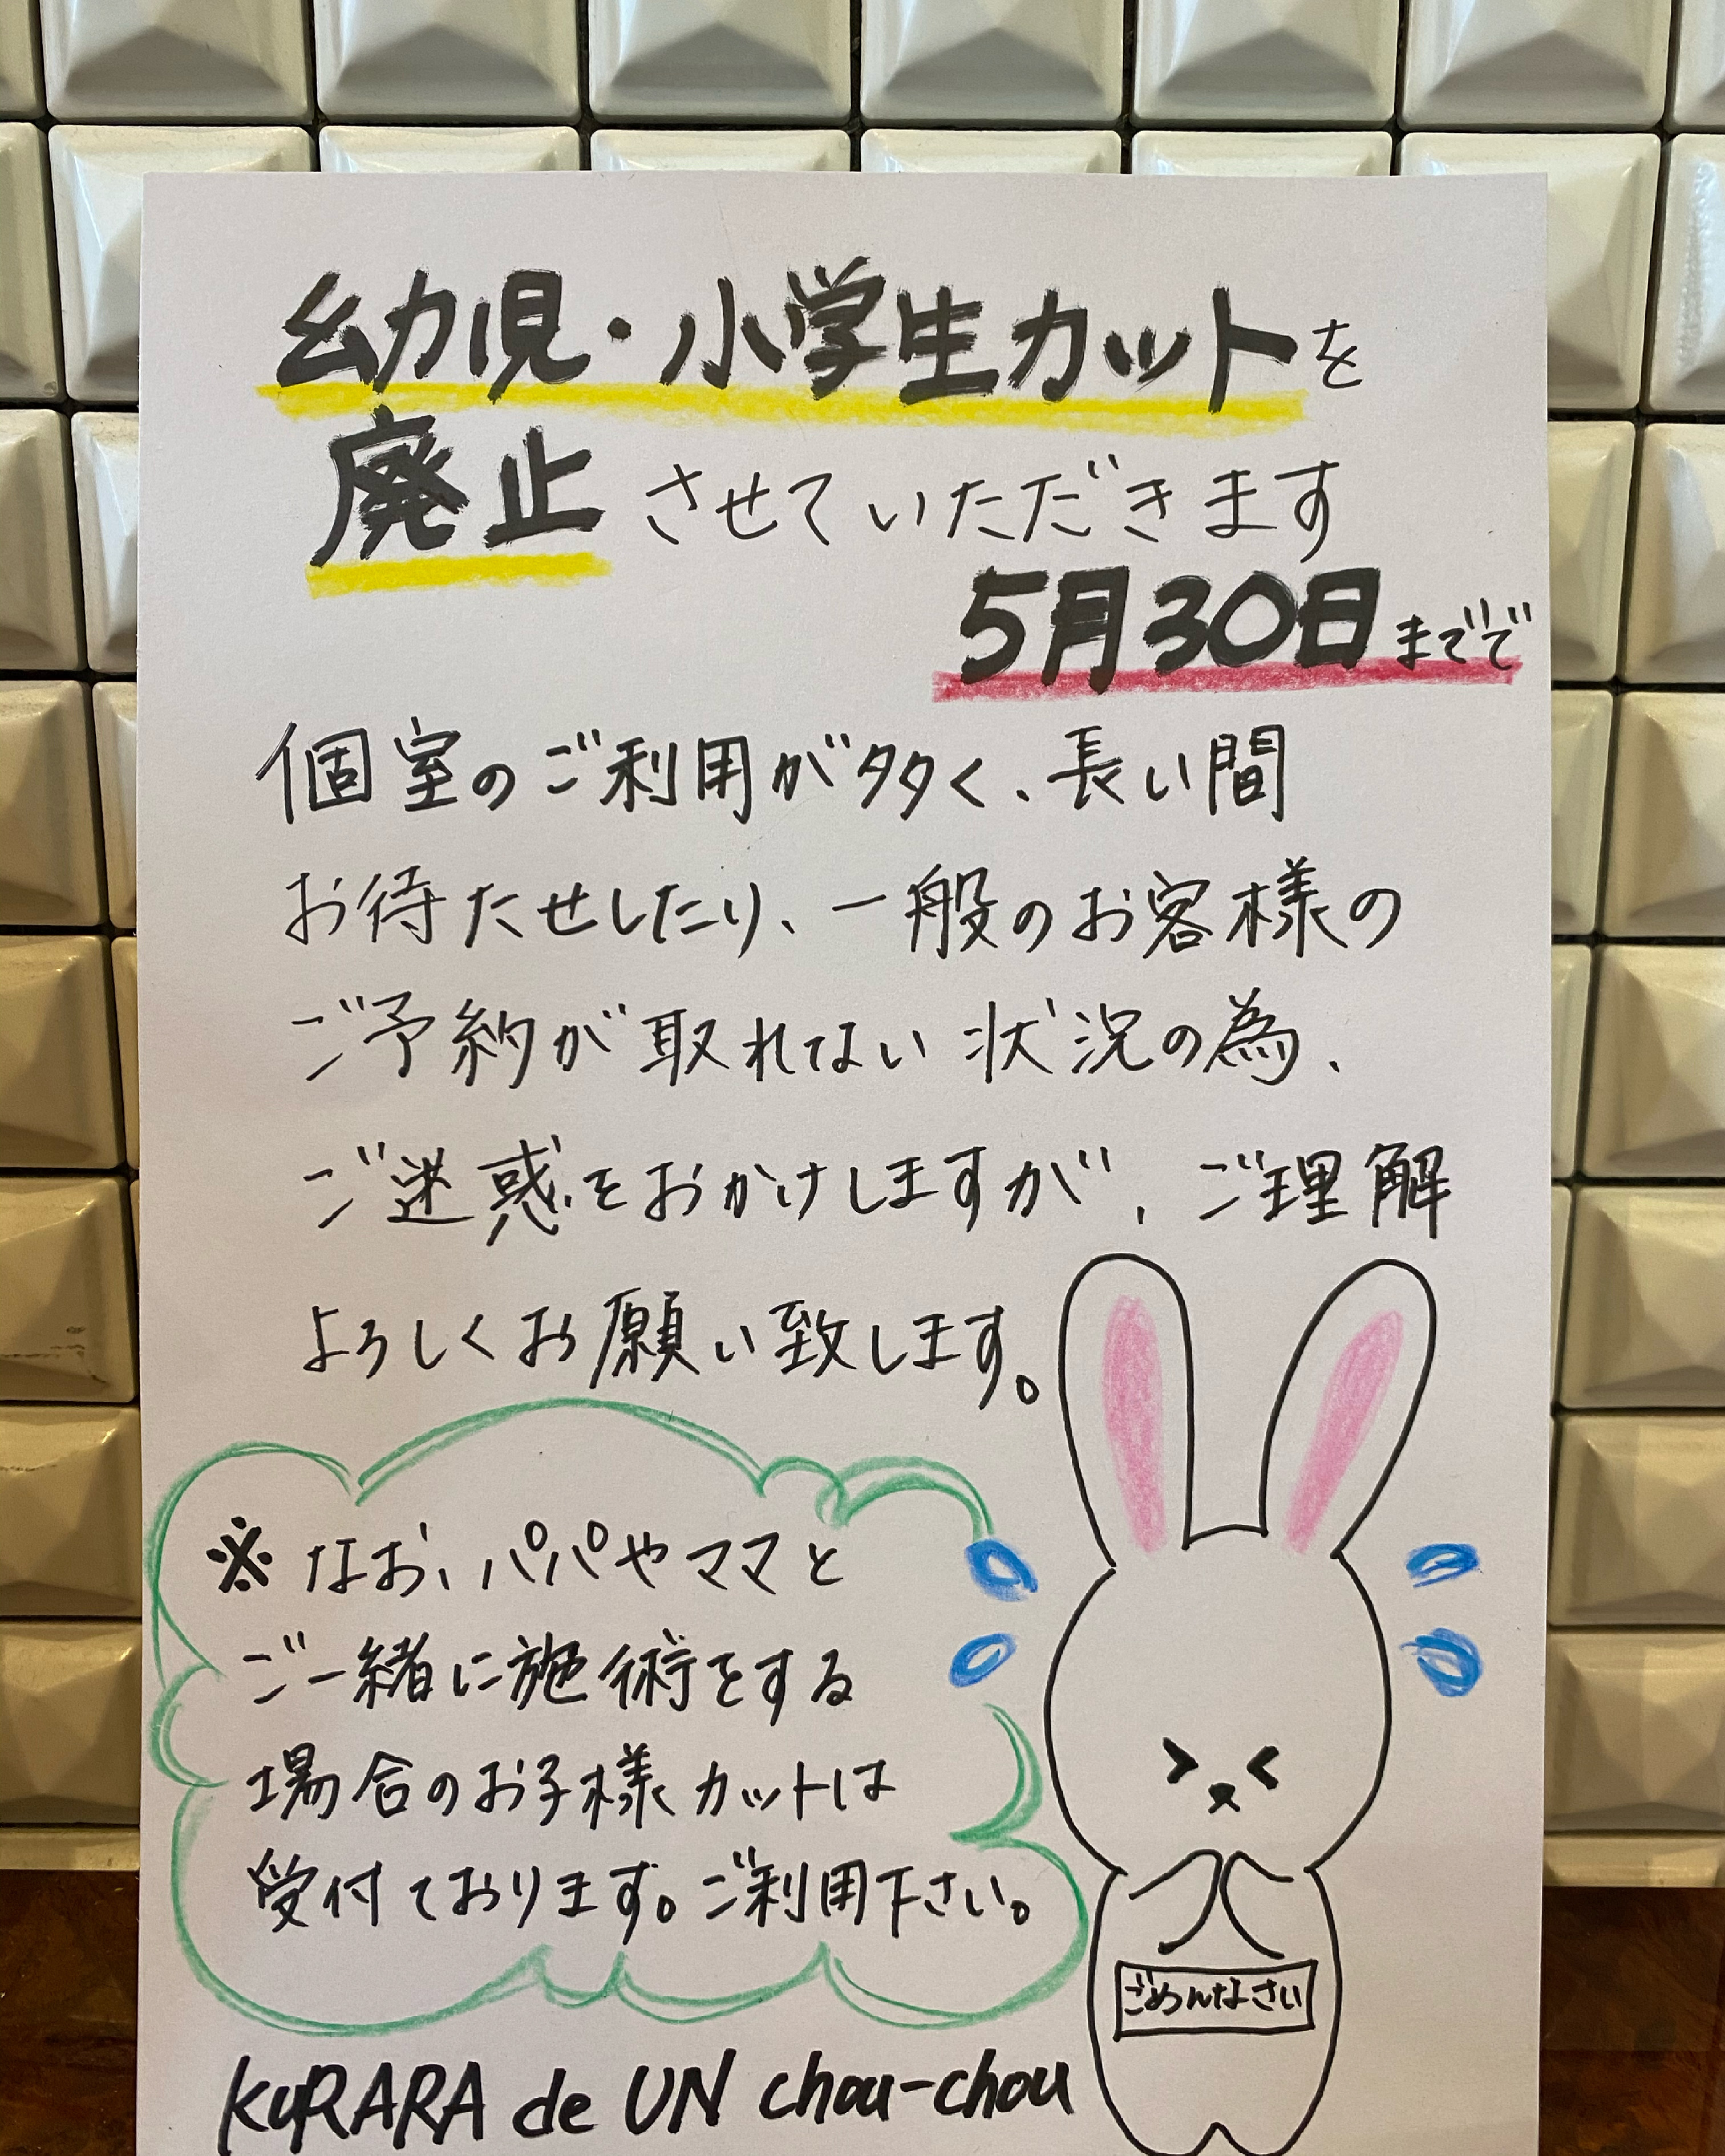 幼児・小学生カットを
廃止させていただきます
5月30日までで
個室のご利用が多く、長い間
お待たせしたり、一般のお客様の
ご予約が取れない状況の為、
ご迷惑をおかけしますが、ご理解
よろしくお願い致します。
※なお、パパやママと
ご一緒に施術をする
場合のお子様カットは
受付ております。ご利用下さい。
ごめんなさい
KURARA de UN chou-chou